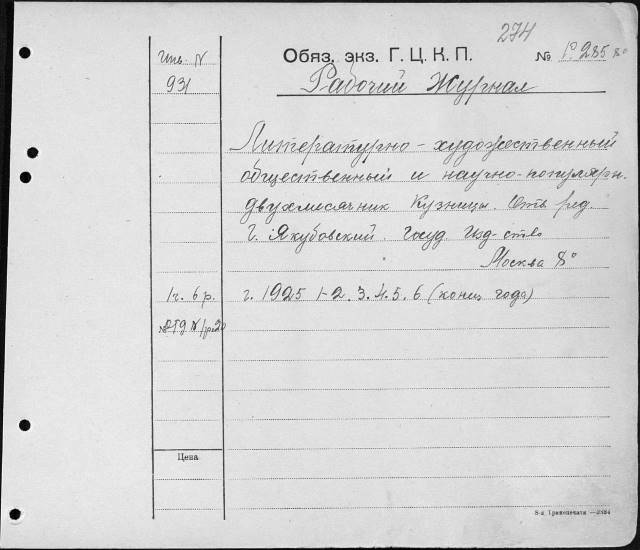 274
Обяз. экз. Г. Ц. К. П. № 1° 285 8°
Рабочий Журнал
Инв. N
931
Литературно-художественный
общественный и научно-популярн.
двухмесячник Кузницы. Отв. ред.
Г. Якубовский. Госуд. Изд-ство
Москва 8°
1 г. 6 р. г. 1925 1-2. 3. 4. 5. 6 (конец года)
Цена
8-я Гравопечати —2384